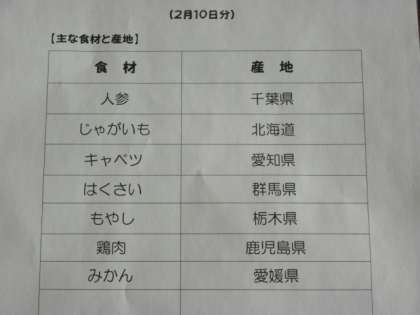 (2月10日分)
【主な食材と産地】
食 材 産 地
人参 千葉県
じゃがいも 北海道
キャベツ 愛知県
はくさい 群馬県
もやし 栃木県
鶏肉 鹿児島県
みかん 愛媛県